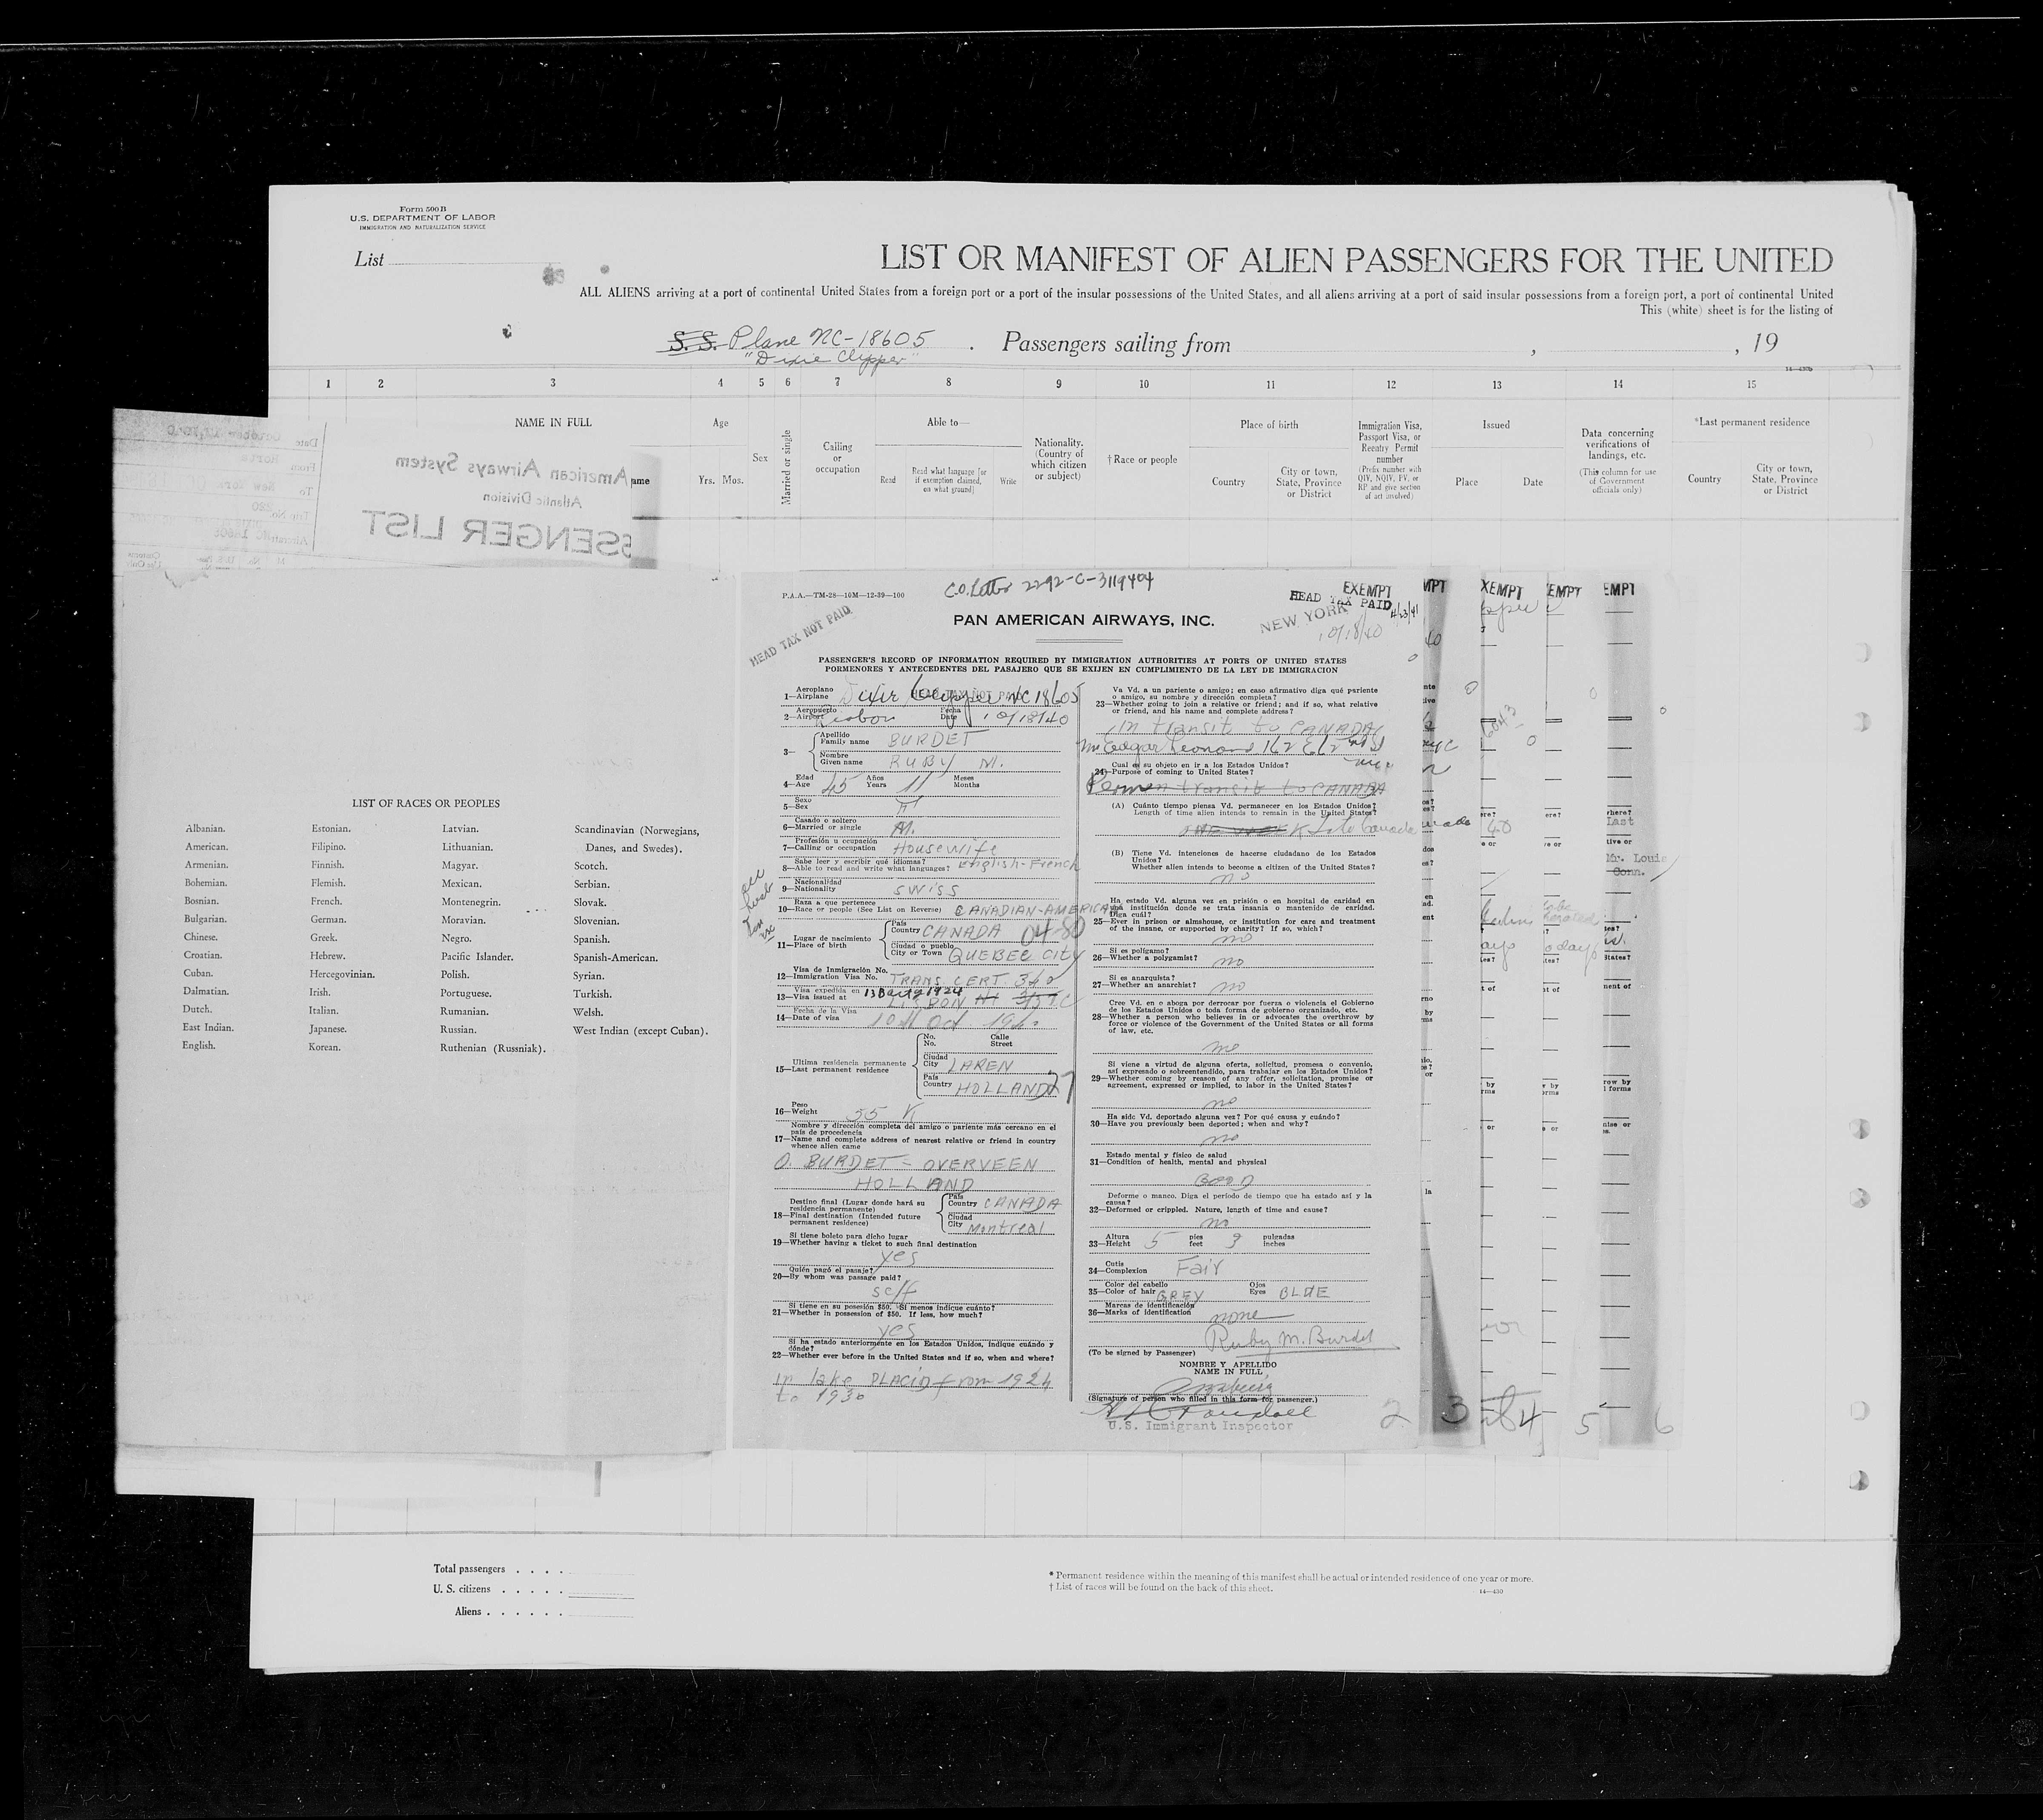 Form 500 B
U.S. DEPARTMENT OF LABOR
IMMIGRATION AND NATURALIZATION SERVICE
List
LIST OR MANIFEST OF ALIEN PASSENGERS FOR THE UNITED
ALL ALIENS arriving at a port of continental United States from a foreign port or a port of the insular possessions of the United States, and all aliens arriving at a port of said insular possessions from a foreign port, a port of continental United
This (white) sheet is for the listing of
S. S. Plane NC-18605 . Passengers sailing from , , 19
"Dixie Clipper"
14—430b
1 2 3 4 5 6 7 8 9 10 11 12 13 14 15
NAME IN FULL
Age
Yrs. Mos.
Sex
Married or single
Calling or occupation
Able to—
Read
Read what language [or if exemption claimed, on what ground]
Write
Nationality. (Country of which citizen or subject)
† Race or people
Place of birth
Country
City or town, State, Province or District
Immigration Visa, Passport Visa, or Reentry Permit number
(Prefix number with QIV, NQIV, PV, or RP and give section of act involved)
Issued
Place
Date
Data concerning verifications of landings, etc.
(This column for use of Government officials only)
*Last permanent residence
Country
City or town, State, Province or District
American Airways System
Atlantic Division
SSENGER LIST
ame
Date
From Horta
To New York
LIST OF RACES OR PEOPLES
Albanian.
American.
Armenian.
Bohemian.
Bosnian.
Bulgarian.
Chinese.
Croatian.
Cuban.
Dalmatian.
Dutch.
East Indian.
English.
Estonian.
Filipino.
Finnish.
Flemish.
French.
German.
Greek.
Hebrew.
Hercegovinian.
Irish.
Italian.
Japanese.
Korean.
Latvian.
Lithuanian.
Magyar.
Mexican.
Montenegrin.
Moravian.
Negro.
Pacific Islander.
Polish.
Portuguese.
Rumanian.
Russian.
Ruthenian (Russniak).
Scandinavian (Norwegians,
Danes, and Swedes).
Scotch.
Serbian.
Slovak.
Slovenian.
Spanish.
Spanish-American.
Syrian.
Turkish.
Welsh.
West Indian (except Cuban).
P.A.A.—TM-28—10M—12-39—100
C.O. Letter 2292-C-3119404
HEAD TAX NOT PAID
EXEMPT
HEAD TAX PAID
4/23/41
NEW YORK
10/18/40
PAN AMERICAN AIRWAYS, INC.
PASSENGER'S RECORD OF INFORMATION REQUIRED BY IMMIGRATION AUTHORITIES AT PORTS OF UNITED STATES
PORMENORES Y ANTECEDENTES DEL PASAJERO QUE SE EXIJEN EN CUMPLIMIENTO DE LA LEY DE IMMIGRACION
Aeroplano
1—Airplane Dixie Clipper NC 18605
HEAD TAX NOT PAID
Aeropuerto Fecha
2—Airport Lisbon Date 10/18/40
3—
Apellido
Family name BURDET
Nombre
Given name RUBY M.
Edad Años Meses
4—Age 45 Years 11 Months
Sexo
5—Sex F
Casado o soltero
6—Married or single M.
Profesión u ocupación
7—Calling or occupation Housewife
Sabe leer y escribir qué idiomas?
8—Able to read and write what languages? English-French
Nacionalidad
9—Nationality SWISS
Raza a que pertenece
10—Race or people (See List on Reverse) CANADIAN-AMERICAN
Lugar de nacimiento
11—Place of birth
País
Country CANADA
Ciudad o pueblo
City or Town QUEBEC CITY
Visa de Inmigración No.
12—Immigration Visa No. TRANS CERT. 340
Visa expedida en
13—Visa issued at LISBON
Fecha de la Visa
14—Date of visa 10th Oct 1940
Ultima residencia permanente
15—Last permanent residence
No. Calle
No. Street
Ciudad
City LAREN
País
Country HOLLAND
Peso
16—Weight 55 K
Nombre y dirección completa del amigo o pariente más cercano en el
país de procedencia
17—Name and complete address of nearest relative or friend in country
whence alien came
O. BURDET - OVERVEEN
HOLLAND
Destino final (Lugar donde hará su
residencia permanente)
18—Final destination (Intended future
permanent residence)
País
Country CANADA
Ciudad
City Montreal
Si tiene boleto para dicho lugar
19—Whether having a ticket to such final destination
yes
Quién pagó el pasaje?
20—By whom was passage paid?
self
Si tiene en su posesión $50. Si menos indique cuánto?
21—Whether in possession of $50. If less, how much?
yes
Si ha estado anteriormente en los Estados Unidos, indique cuándo y
dónde?
22—Whether ever before in the United States and if so, when and where?
in lake PLACID from 1924
to 1930
Va Vd. a un pariente o amigo; en caso afirmativo diga qué pariente
o amigo, su nombre y dirección completa?
23—Whether going to join a relative or friend; and if so, what relative
or friend, and his name and complete address?
In transit to CANADA
Mr Edgar Leonard 162 E 62nd St
Cual es su objeto en ir a los Estados Unidos?
24—Purpose of coming to United States?
transit to CANADA
(A) Cuánto tiempo piensa Vd. permanecer en los Estados Unidos?
Length of time alien intends to remain in the United States?
(B) Tiene Vd. intenciones de hacerse ciudadano de los Estados
Unidos?
Whether alien intends to become a citizen of the United States?
no
Ha estado Vd. alguna vez en prisión o en hospital de caridad en
una institución donde se trata insania o mantenido de caridad.
Diga cuál?
25—Ever in prison or almshouse, or institution for care and treatment
of the insane, or supported by charity? If so, which?
no
Si es polígamo?
26—Whether a polygamist? no
Si es anarquista?
27—Whether an anarchist? no
Cree Vd. en o aboga por derrocar por fuerza o violencia el Gobierno
de los Estados Unidos o toda forma de gobierno organizado, etc.
28—Whether a person who believes in or advocates the overthrow by
force or violence of the Government of the United States or all forms
of law, etc.
no
Si viene a virtud de alguna oferta, solicitud, promesa o convenio,
así expresado o sobreentendido, para trabajar en los Estados Unidos?
29—Whether coming by reason of any offer, solicitation, promise or
agreement, expressed or implied, to labor in the United States?
no
Ha sido Vd. deportado alguna vez? Por qué causa y cuándo?
30—Have you previously been deported; when and why?
no
Estado mental y físico de salud
31—Condition of health, mental and physical
GOOD
Deforme o manco. Diga el período de tiempo que ha estado así y la
causa?
32—Deformed or crippled. Nature, length of time and cause?
no
Altura pies pulgadas
33—Height 5 feet 3 inches
Cutis
34—Complexion Fair
Color del cabello Ojos
35—Color of hair GREY Eyes BLUE
Marcas de identificación
36—Marks of identification none
Ruby M. Burdet
(To be signed by Passenger)
NOMBRE Y APELLIDO
NAME IN FULL
(Signature of person who filled in this form for passenger.)
U.S. Immigrant Inspector
2 3 4 5 6
MPT XEMPT EMPT EMPT
Mr. Louis
Conn.
Total passengers . . . .
U. S. citizens . . . . .
Aliens . . . . . .
* Permanent residence within the meaning of this manifest shall be actual or intended residence of one year or more.
† List of races will be found on the back of this sheet.
14—430